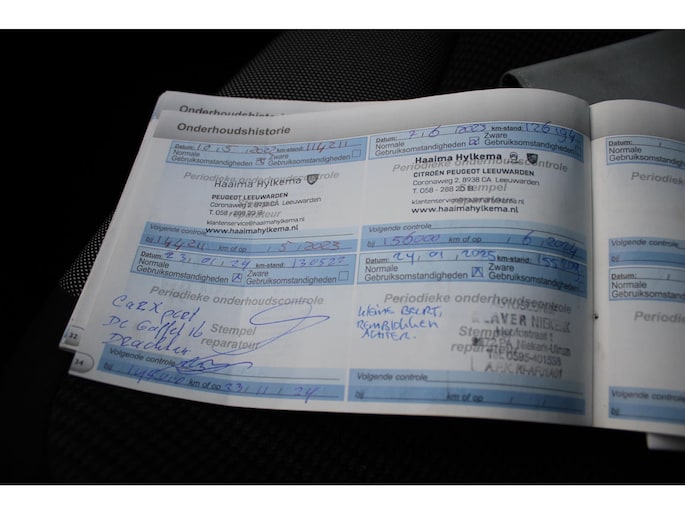 Onderhoudshistorie
Onderhoudshistorie
Datum: 10,5,2022 km-stand: 114211
Normale Gebruiksomstandigheden
Zware Gebruiksomstandigheden
Periodieke onderhoudscontrole
Haaima Hylkema
PEUGEOT LEEUWARDEN
Coronaweg 2, 8938 CA Leeuwarden
T. 058 - 288 20 18
klantenservice@haaimahylkema.nl
www.haaimahylkema.nl
reparateur
Volgende controle
bij 144211 km of op 1,5,2023
Datum: 7,6,2023 km-stand: 126194
Normale Gebruiksomstandigheden
Zware Gebruiksomstandigheden
Periodieke onderhoudscontrole
Haaima Hylkema
CITROËN PEUGEOT LEEUWARDEN
Coronaweg 2, 8938 CA Leeuwarden
T. 058 - 288 20 18
Stempel
reparateur
www.haaimahylkema.nl
Volgende controle
bij 156000 km of op 1,6,2024
Datum: 23,01,24 km-stand: 130522
Normale Gebruiksomstandigheden
Zware Gebruiksomstandigheden
Periodieke onderhoudscontrole
CarXpert
De Gaffel 16
Drachten
Stempel
reparateur
Volgende controle
bij km of op
Datum: 24,01,2025 km-stand:
Normale Gebruiksomstandigheden
Zware Gebruiksomstandigheden
Periodieke onderhoudscontrole
Kleine beurt,
Remblokken
achter.
Stempel
reparateur
Tel. 0595-401558
Volgende controle
bij km of op
Datum:
Normale
Gebruiksomstandigheden
Periodiek
Volgende controle
bij
Datum:
Normale
Gebruiksomstandigheden
Periodiek
Volgende controle
bij
32
34